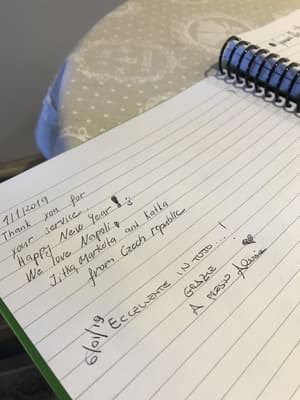 1/1/2019
Thank you for
your service.
Happy New Year! :)
We love Napoli.
Jitka, Marketa and Katka
from Czech republic
6/01/19 ECCELLENTE IN TUTTO...!
GRAZIE
A PRESTO